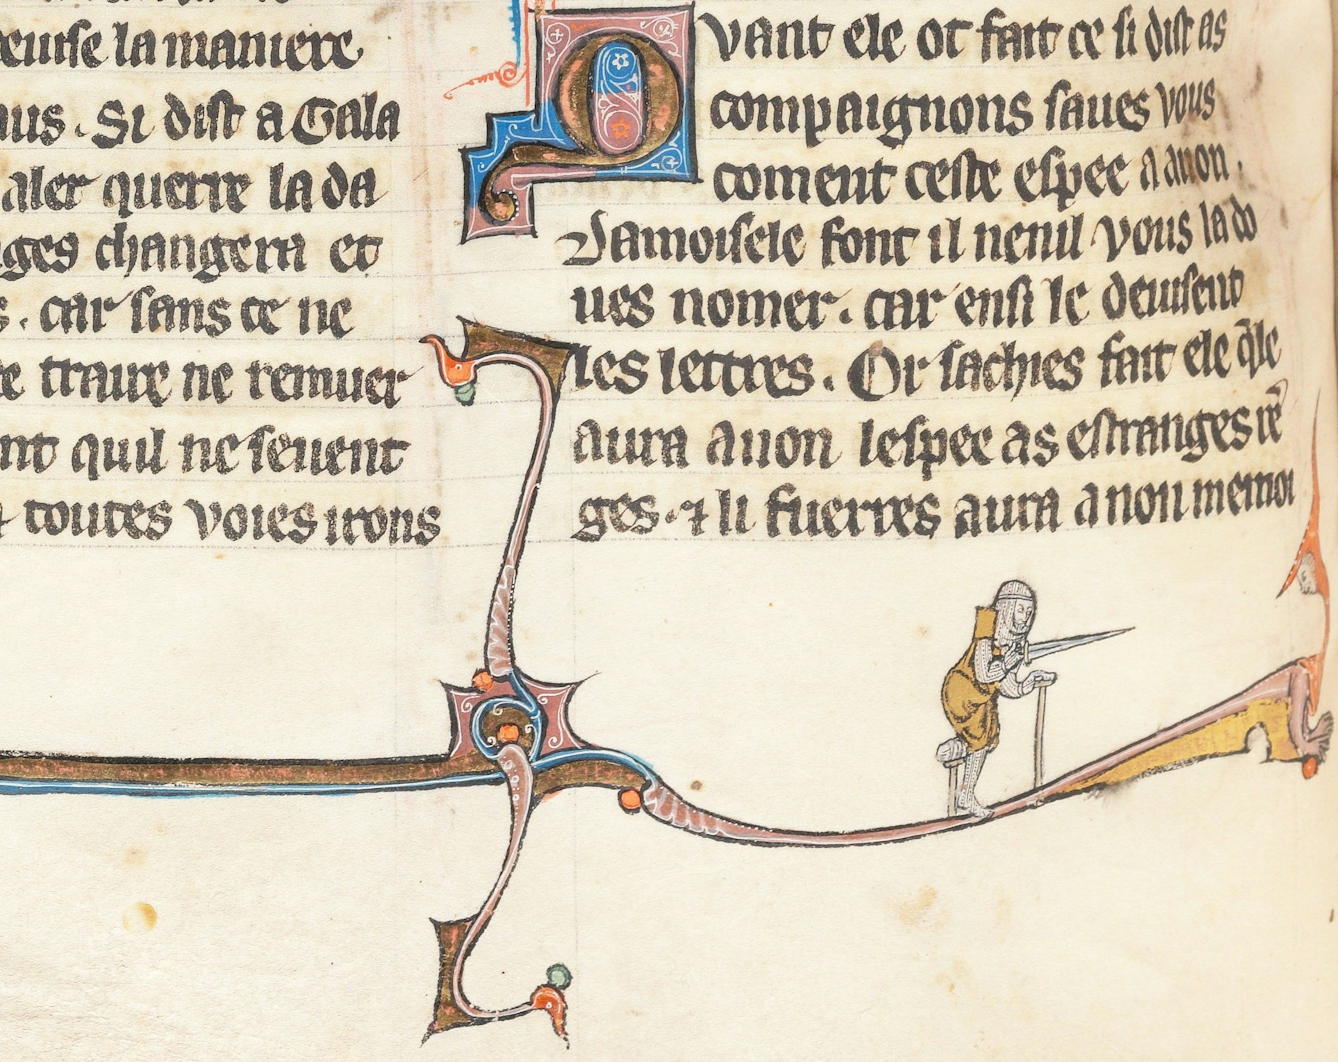 deuise la maniere
aus. Si dist a Gala
aler querre la da
ges changera et
s. car sans ce ne
e traire ne remuer
nt quil ne seuent
toutes voies irons
Qvant ele ot fait ce si dist as
compaignons saues vous
coment ceste espee a anon.
Damoisele font il nenil vous la do
ues nomer. car ensi le deuisent
les lettres. Or sachies fait ele q̄ le
aura anon lespee as estranges rē
ges. ⁊ li fuerres aura a non memoi